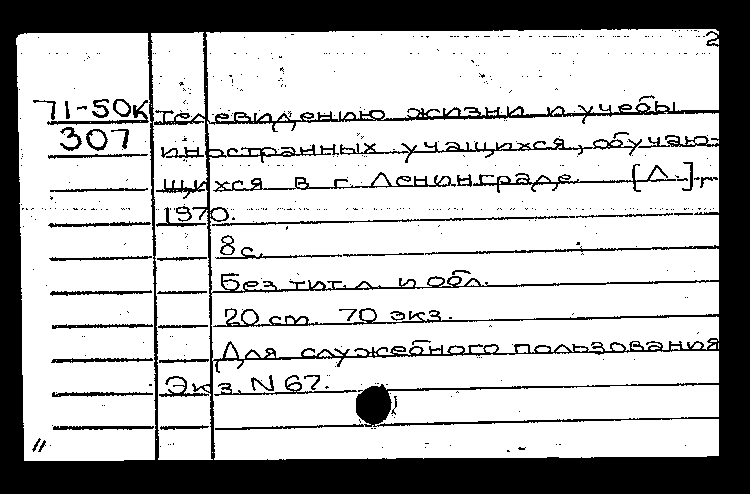 2
71-50К телевидению жизни и учебы
307 иностранных учащихся, обучаю-
щихся в г. Ленинграде. [Л.],
1970.
8 с.
Без тит. л. и обл.
20 см. 70 экз.
Для служебного пользования
Экз. N 67.